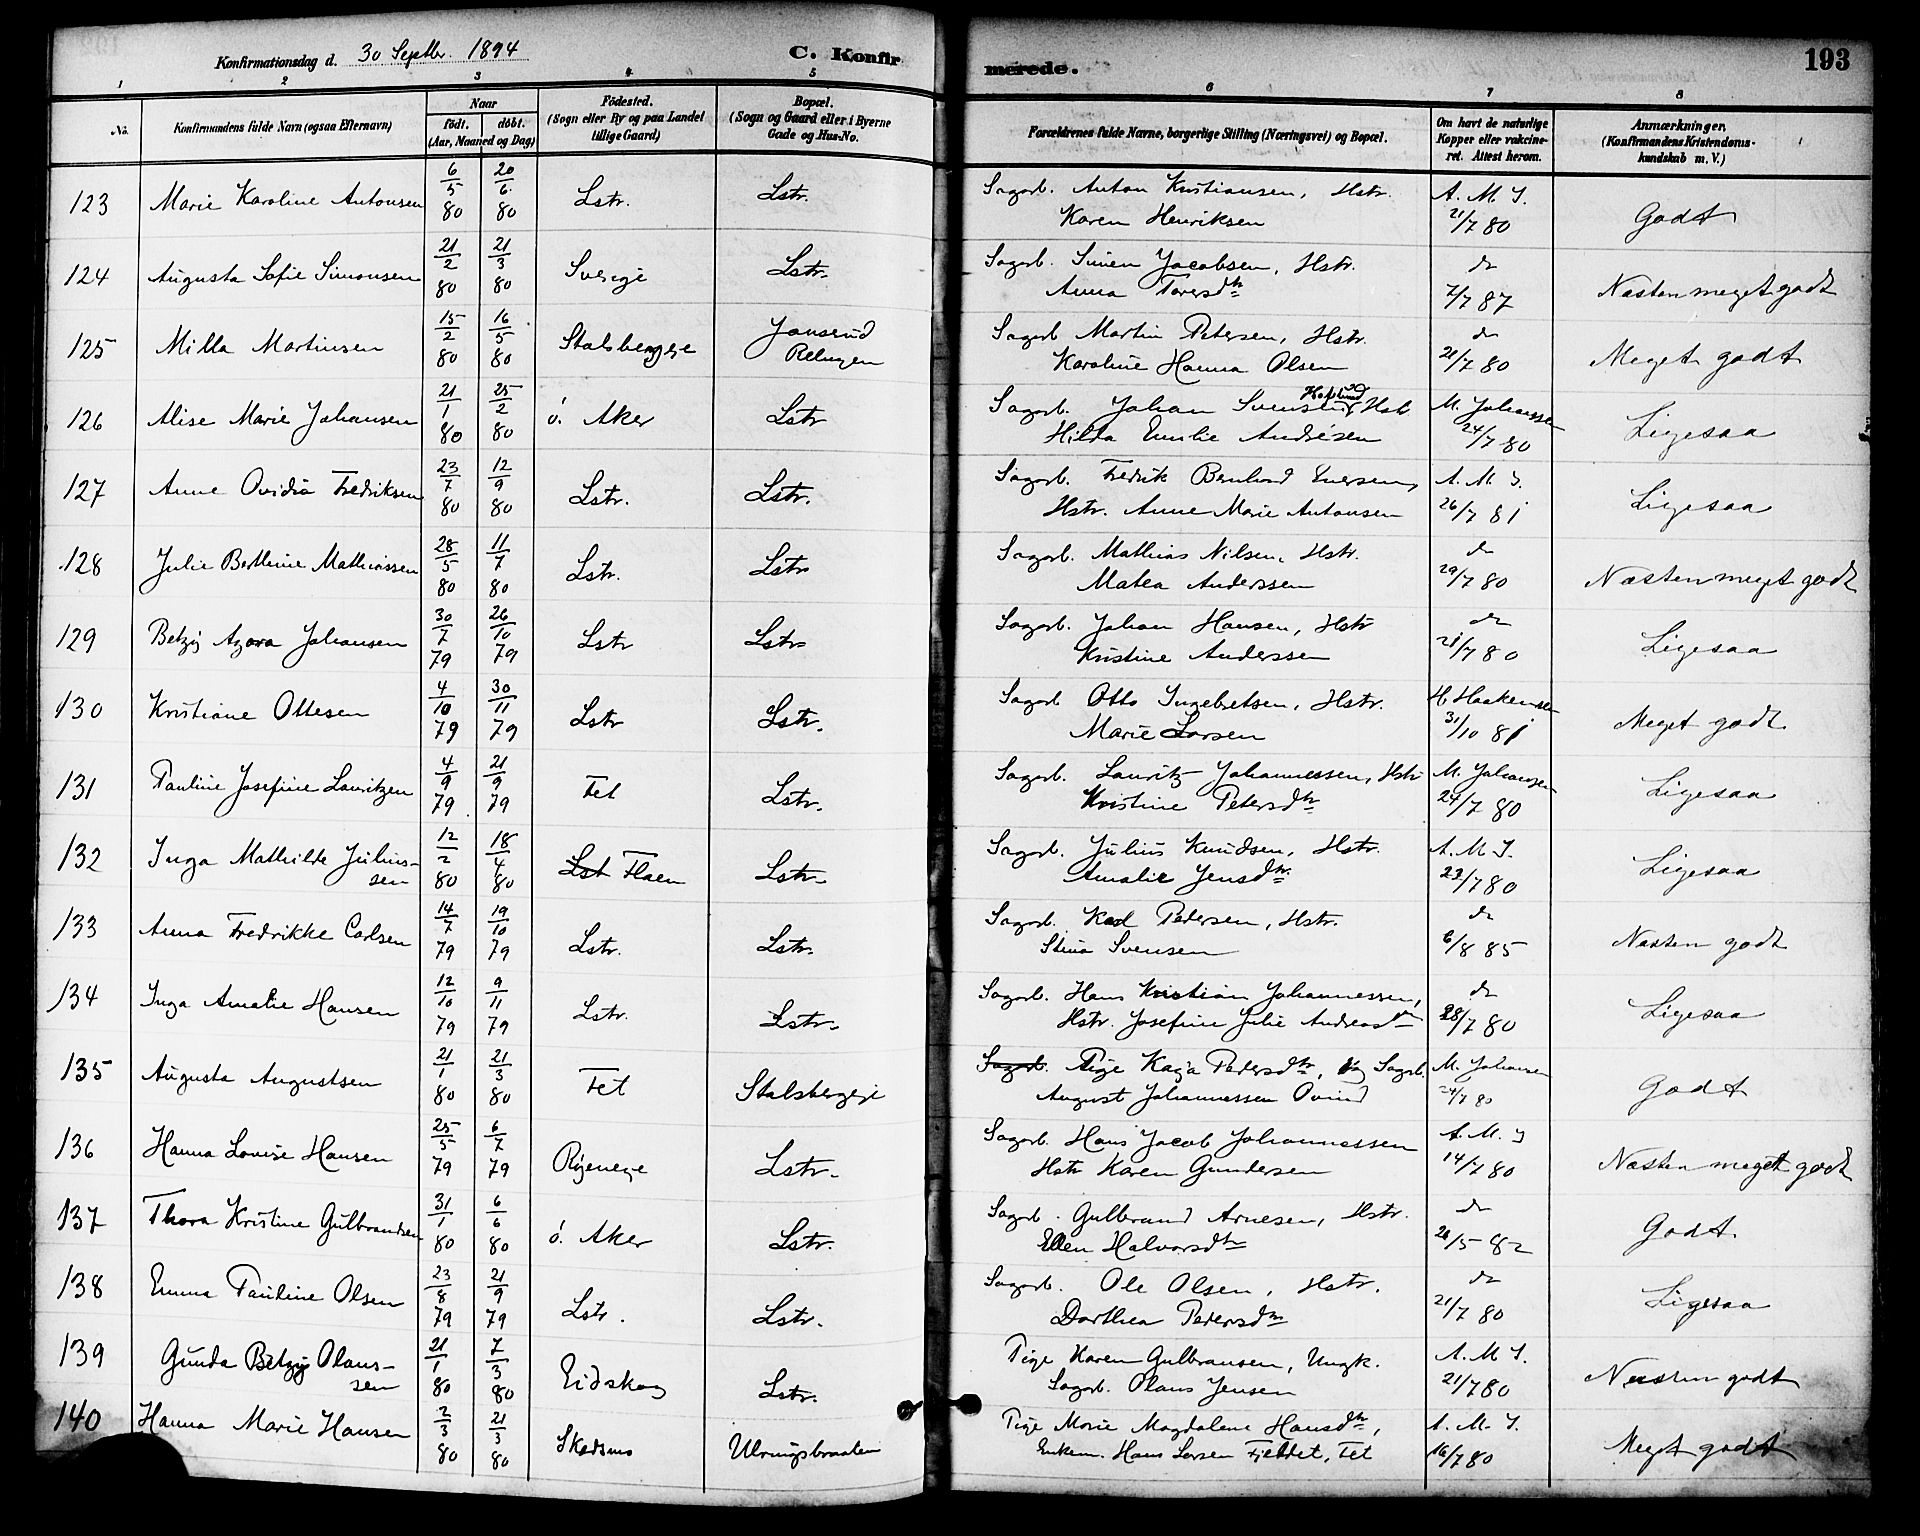 Konfirmationsdag d. 30 Septbr. 1894 C. Konfir
merede. 193
1 2 3 4 5 6 7 8
No. Konfirmandens fulde Navn (ogsaa Efternavn) Naar födt. döbt. (Aar, Maaned og Dag) Födested. (Sogn eller By og paa Landet tillige Gaard) Bopæl. (Sogn og Gaard eller i Byerne Gade og Hus-No. Forældrenes fulde Navne, borgerlige Stilling (Næringsvei) og Bopæl. Om havt de naturlige Kopper eller vakcineret. Attest herom. Anmærkninger. (Konfirmandens Kristendomskundskab m. V.)
123 Marie Karoline Antonsen 6/5 80 20/6 80 Lstr. Lstr. Sagarb. Anton Kristiansen, Hstr. A. M. J.
Karen Henriksen 21/7 80 Godt
124 Augusta Sofie Simonsen 21/2 80 21/3 80 Sverige Lstr. Sagarb. Simen Jacobsen, Hstr. do
Anna Toresdtr 7/7 87 Næsten meget godt
125 Milla Martinsen 15/2 80 16/5 80 Stalsbergeje Jonsrud Sagarb Martin Petersen, Hstr. do
Relingen Karoline Hanna Olsen 21/7 80 Meget godt
126 Alise Marie Johansen 21/1 80 25/2 80 ö. Aker Lstr Sagarb. Johan Svensen Hstr M. Johanssen
Hilda Emilie Andrésen 24/7 80 Ligesaa
127 Anne Ovidia Fredriksen 23/7 80 12/9 80 Lstr. Lstr. Sagarb. Fredrik Bernhard Iversen, A. M. J.
Hstr. Anne Marie Antonsen 26/7 81 Ligesaa
128 Julie Bertheine Mathiassen 28/5 80 11/7 80 Lstr. Lstr Sagarb. Mathias Nilsen, Hstr. do
Matea Anderssen 29/7 80 Næsten meget godt
129 Betzy Azora Johansen 30/7 79 26/10 79 Lstr Lstr Sagarb. Johan Hansen, Hstr do
Kristine Anderssen 21/7 80 Ligesaa
130 Kristiane Ottesen 4/10 79 30/11 79 Lstr Lstr. Sagarb Otto Ingebretsen, Hstr. H. Haakensen
Marie Larsen 31/10 81 Meget godt
131 Pauline Josefine Lauritzen 4/9 79 21/9 79 Fet Lstr. Sagarb. Lauritz Johannessen, Hstr M. Johansen
Kristine Petersdtr 24/7 80 Ligesaa
132 Inga Mathilde Julius- 12/2 80 18/4 80 Lst Flaen Lstr. Sagarb. Julius Knudsen, Hstr. A. M. J.
sen Amalie Jensdtr 23/7 80 Ligesaa
133 Anna Fredrikke Carlsen 14/7 79 19/10 79 Lstr. Lstr. Sagarb. Karl Pedersen, Hstr. do
Stina Svensen 6/8 85 Næsten godt
134 Inga Amalie Hansen 12/10 79 9/11 79 Lstr. Lstr. Sagarb. Hans Kristian Johannessen, do
Hstr. Josefine Julie Andreasdtr 28/7 80 Ligesaa
135 Augusta Augustsen 21/1 80 21/3 80 Fet Stalsbergeje Sagarb. Pige Kaja Pedersdtr, Ung Sagarb. M. Johansen
August Johannessen Ovind 24/7 80 Godt
136 Hanna Lovise Hansen 25/5 79 6/7 79 Lstr. Sagarb. Hans Jacob Johannessen A. M. J
Hstr Karen Gundersen 14/7 80 Næsten meget godt
137 Thora Kristine Gulbrandsen 31/1 80 6/6 80 ö. Aker Lstr. Sagarb. Gulbrand Arnesen, Hstr. do
Ellen Halvorsdtr 26/5 82 Godt
138 Emma Pauline Olsen 23/8 79 21/9 79 Lstr. Lstr. Sagarb. Ole Olsen, Hstr. do
Dorthea Pedersdtr 21/7 80 Ligesaa
139 Gunda Betzy Olaus- 21/1 80 7/3 80 Eidskog Lstr. Pige Karen Gulbransen, Ungk. A. M J.
sen Sagarb. Olaus Jensen 21/7 80 Næsten godt
140 Hanna Marie Hansen 2/3 80 21/3 80 Skedsmo Pige Marie Magdalene Hansdtr, A. M. J.
Enkem. Hans Larsen Fjeldet, Fet 16/7 80 Meget godt